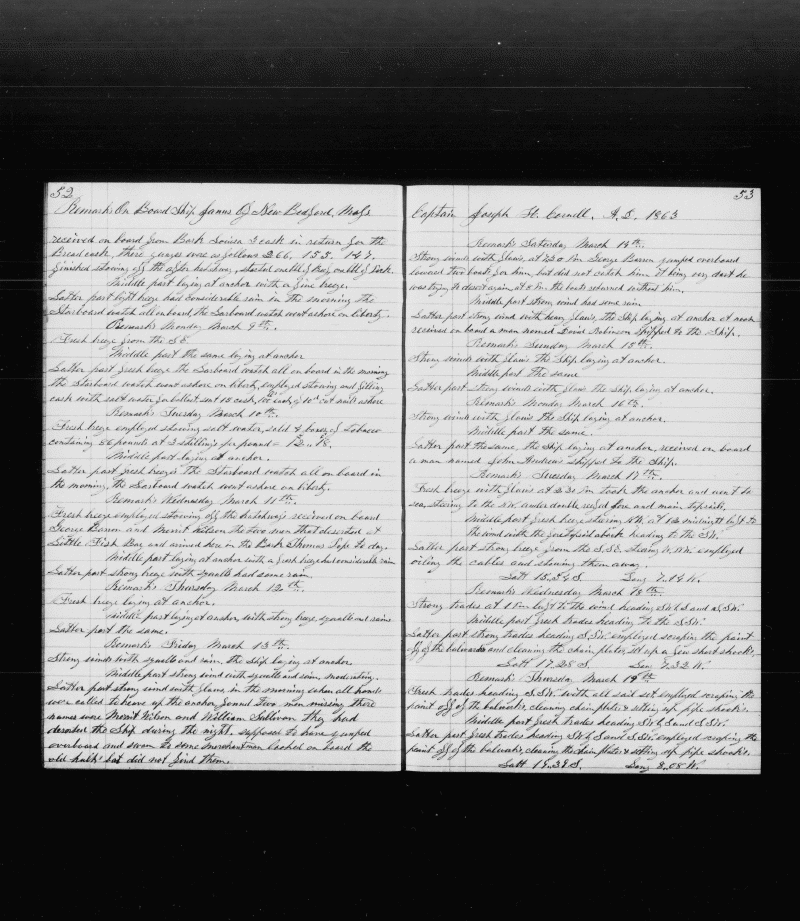 52
Remarks On Board Ship Janus Of New Bedford, Mass
received on board from Bark Louisa 3 cask in return for the
Bread cask, there guages were as follows 266, 155, 147.
finished stowing off the after hatchway,
Middle part laying at anchor with a fine breeze.
Latter part light breeze had considerable rain in the morning the
Starboard watch all on board, the Larboard watch went ashore on liberty.
Remarks Monday March 9th.
Fresh breeze from the SE.
Middle part the same laying at anchor
Latter part fresh breeze the Larboard watch all on board in the morning
the Starboard watch went ashore on liberty, employed stowing and filling
cask with salt water for ballast sent 15 cask, ashore
Remarks Tuesday March 10th.
Fresh breeze employed stowing salt water, sold 4 boxes of tobacco
containing 86 pounds at 3 shillings per pound = 12.18.
Middle part laying at anchor.
Latter part fresh breezes the Starboard watch all on board in
the morning, the Larboard watch went ashore on liberty.
Remarks Wednesday March 11th.
Fresh breeze employed stowing off the hatchways received on board
George Barron and Merrit Wilson the two men that deserted at
Little Fish Bay and arrived here in the Bark Thomas Pope to day.
Middle part laying at anchor with a fresh breeze and considerable rain
Latter part strong breeze with squalls had some rain.
Remarks Thursday March 12th.
Fresh breeze laying at anchor.
Middle part laying at anchor, with strong breeze, squalls and rains
Latter part the same.
Remarks Friday March 13th.
Strong winds with squalls and rain, the Ship laying at anchor.
Middle part strong wind with squalls and rain, moderating.
Latter part strong wind with flaws in the morning when all hands
were called to heave up the anchor found two men missing there
names were Merrit Wilson and William Sullivan they had
deserted the Ship during the night. supposed to have jumped
overboard and swam to some merchantman looked on board the
old hulk but did not find them.
53
Captain Joseph H. Cornell, A.D. 1863
Remarks Saturday March 14th.
Strong winds with flaws, at 7.30 Pm George Barron jumped overboard
lowered two boats for him, but did not catch him it being very dark he
was trying to desert again at 8 Pm the boats returned without him.
Middle part strong wind had some rain
Latter part strong wind with heavy flaws, the Ship laying at anchor at noon
received on board a man named David Robinson Shipped to the Ship.
Remarks Sunday March 15th.
Strong winds with flaws the Ship laying at anchor.
Middle part the same
Latter part strong winds with flaws the Ship laying at anchor.
Remarks Monday March 16th.
Strong winds with flaws the Ship laying at anchor.
Middle part the same.
Latter part the same, the Ship laying at anchor, received on board
a man named John Andrews Shipped to the Ship.
Remarks Tuesday March 17th.
Fresh breeze with flaws at 2.30 Pm took the anchor and went to
sea, steering to the N.W. under double reefed fore and main topsails.
Middle part fresh breeze steering N.W. at 12 midnight luft to
the wind with the foretopsail aback heading to the SW.
Latter part strong breeze from the S.SE. steering W.NW. employed
oiling the cables and stowing them away.
Latt 15.54 S. Long 7.14 W.
Remarks Wednesday March 18th.
Strong trades at 1 Pm luft to the wind heading SW by S and S.SW.
Middle part fresh trades heading to the S.SW.
Latter part strong trades heading S.SW. employed scraping the paint
off of the bulwarks and cleaning the chain plates, set up a few short shooks.
Latt 17.28 S. Long 7.32 W.
Remarks Thursday March 19th.
Fresh trades heading S.SW. with all sail set employed scraping the
paint off of the bulwarks, cleaning chain plates & setting up pipe shooks.
Middle part fresh trades heading SW by S and S.SW.
Latter part fresh trades heading SW by S and S.SW. employed scraping the
paint off of the bulwarks, cleaning the chain plates & setting up pipe shooks.
Latt 19.39 S. Long 8.08 W.